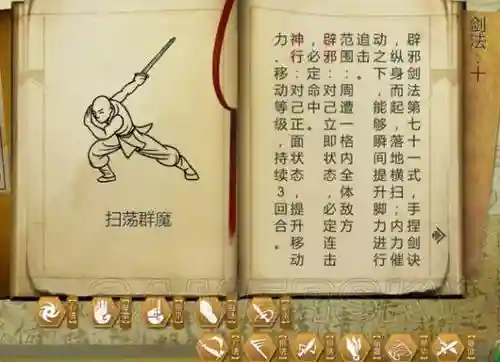 剑法：十
辟邪剑法第七十一式，手捏剑诀
，纵身而起，落地横扫；内力催
动之下，能够瞬间提升脚力进行
追击。
范围：周遭一格内全体敌方
辟邪：对己立即状态，必定连击
，必定命中。
神行：对己正面状态，提升移动
力、移动等级，持续3回合。
扫荡群魔